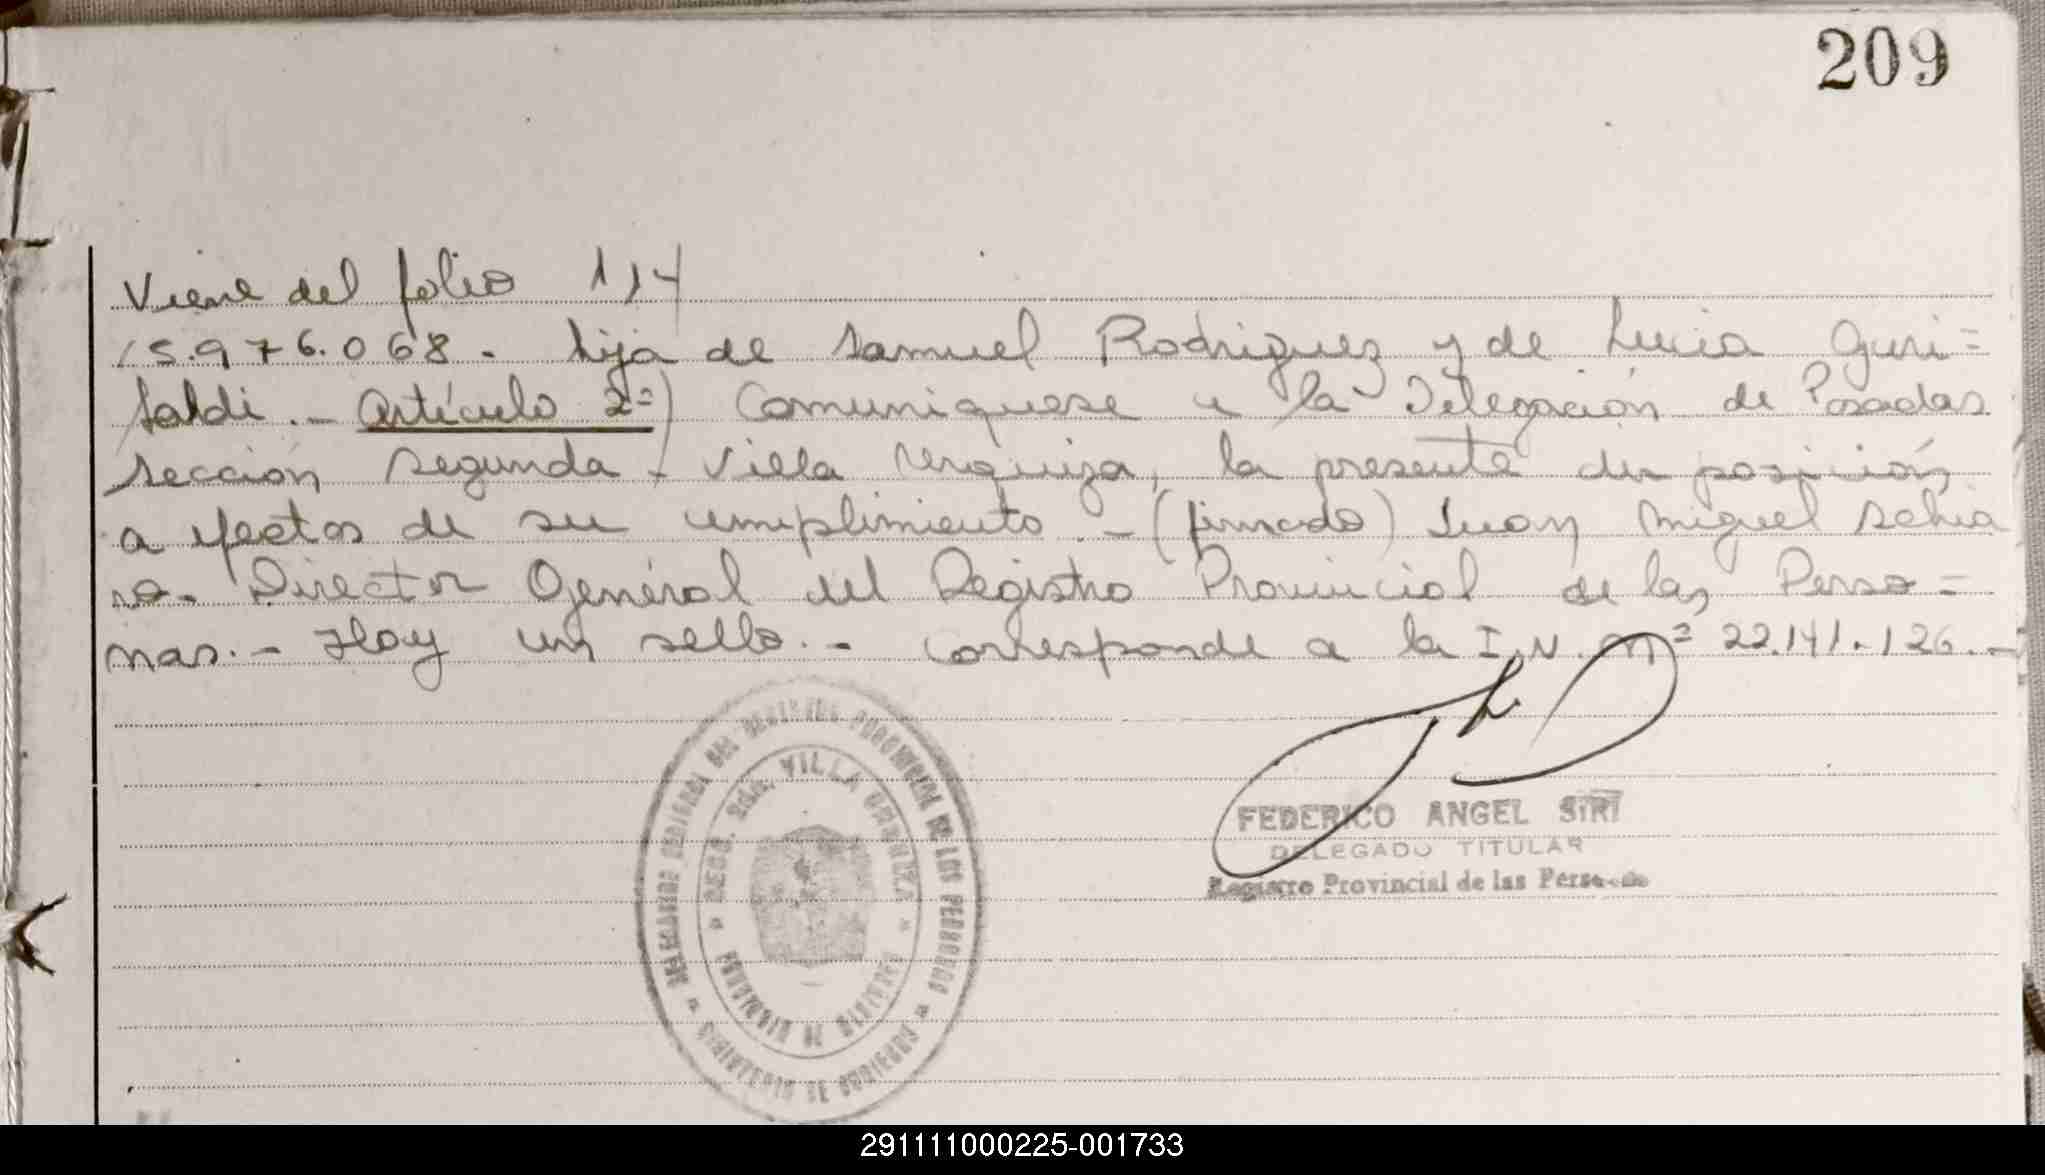 209
Viene del folio 114
15.976.068. hija de Samuel Rodriguez y de Lucia Guri=
saldi. - Artículo 2º) Comuniquese a la Delegación de Posadas
sección segunda - Villa Urquiza, la presente disposición
a efectos de su cumplimiento. - (firmado) Juan Miguel Schia
vo. Director General del Registro Provincial de las Perso=
nas. - Hay un sello. - Corresponde a la I.N. nº 22.141.126. -
FEDERICO ANGEL SIRI
DELEGADO TITULAR
Registro Provincial de las Personas
SECC. 2da. VILLA URQUIZA
PROVINCIA DE MISIONES
REGISTRO PROVINCIAL DE LAS PERSONAS
MINISTERIO DE GOBIERNO
291111000225-001733